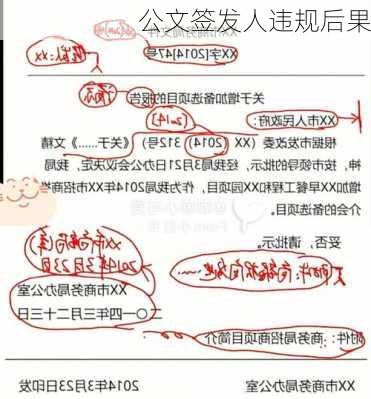 公文签发人违规后果
XX市商务局文件
XX字[2014]47号
签发人:xx
关于增加备选项目的报告
请示
XX市人民政府:
[2014]
根据市发改委(XX(2014)312号)《关于……》文精
神,按市领导的批示,经我局3月21日办公会议决定,我局
增加XX早餐工程和XX园项目,作为我局2014年XX市招商
介会的备选项目。
妥否,请批示。
XX市商务局(章)
2014年3月23日
XX市商务局办公室
二〇一四年三月二十三日
附件:商务局招商项目简介
XX市商务局办公室 2014年3月23日印发